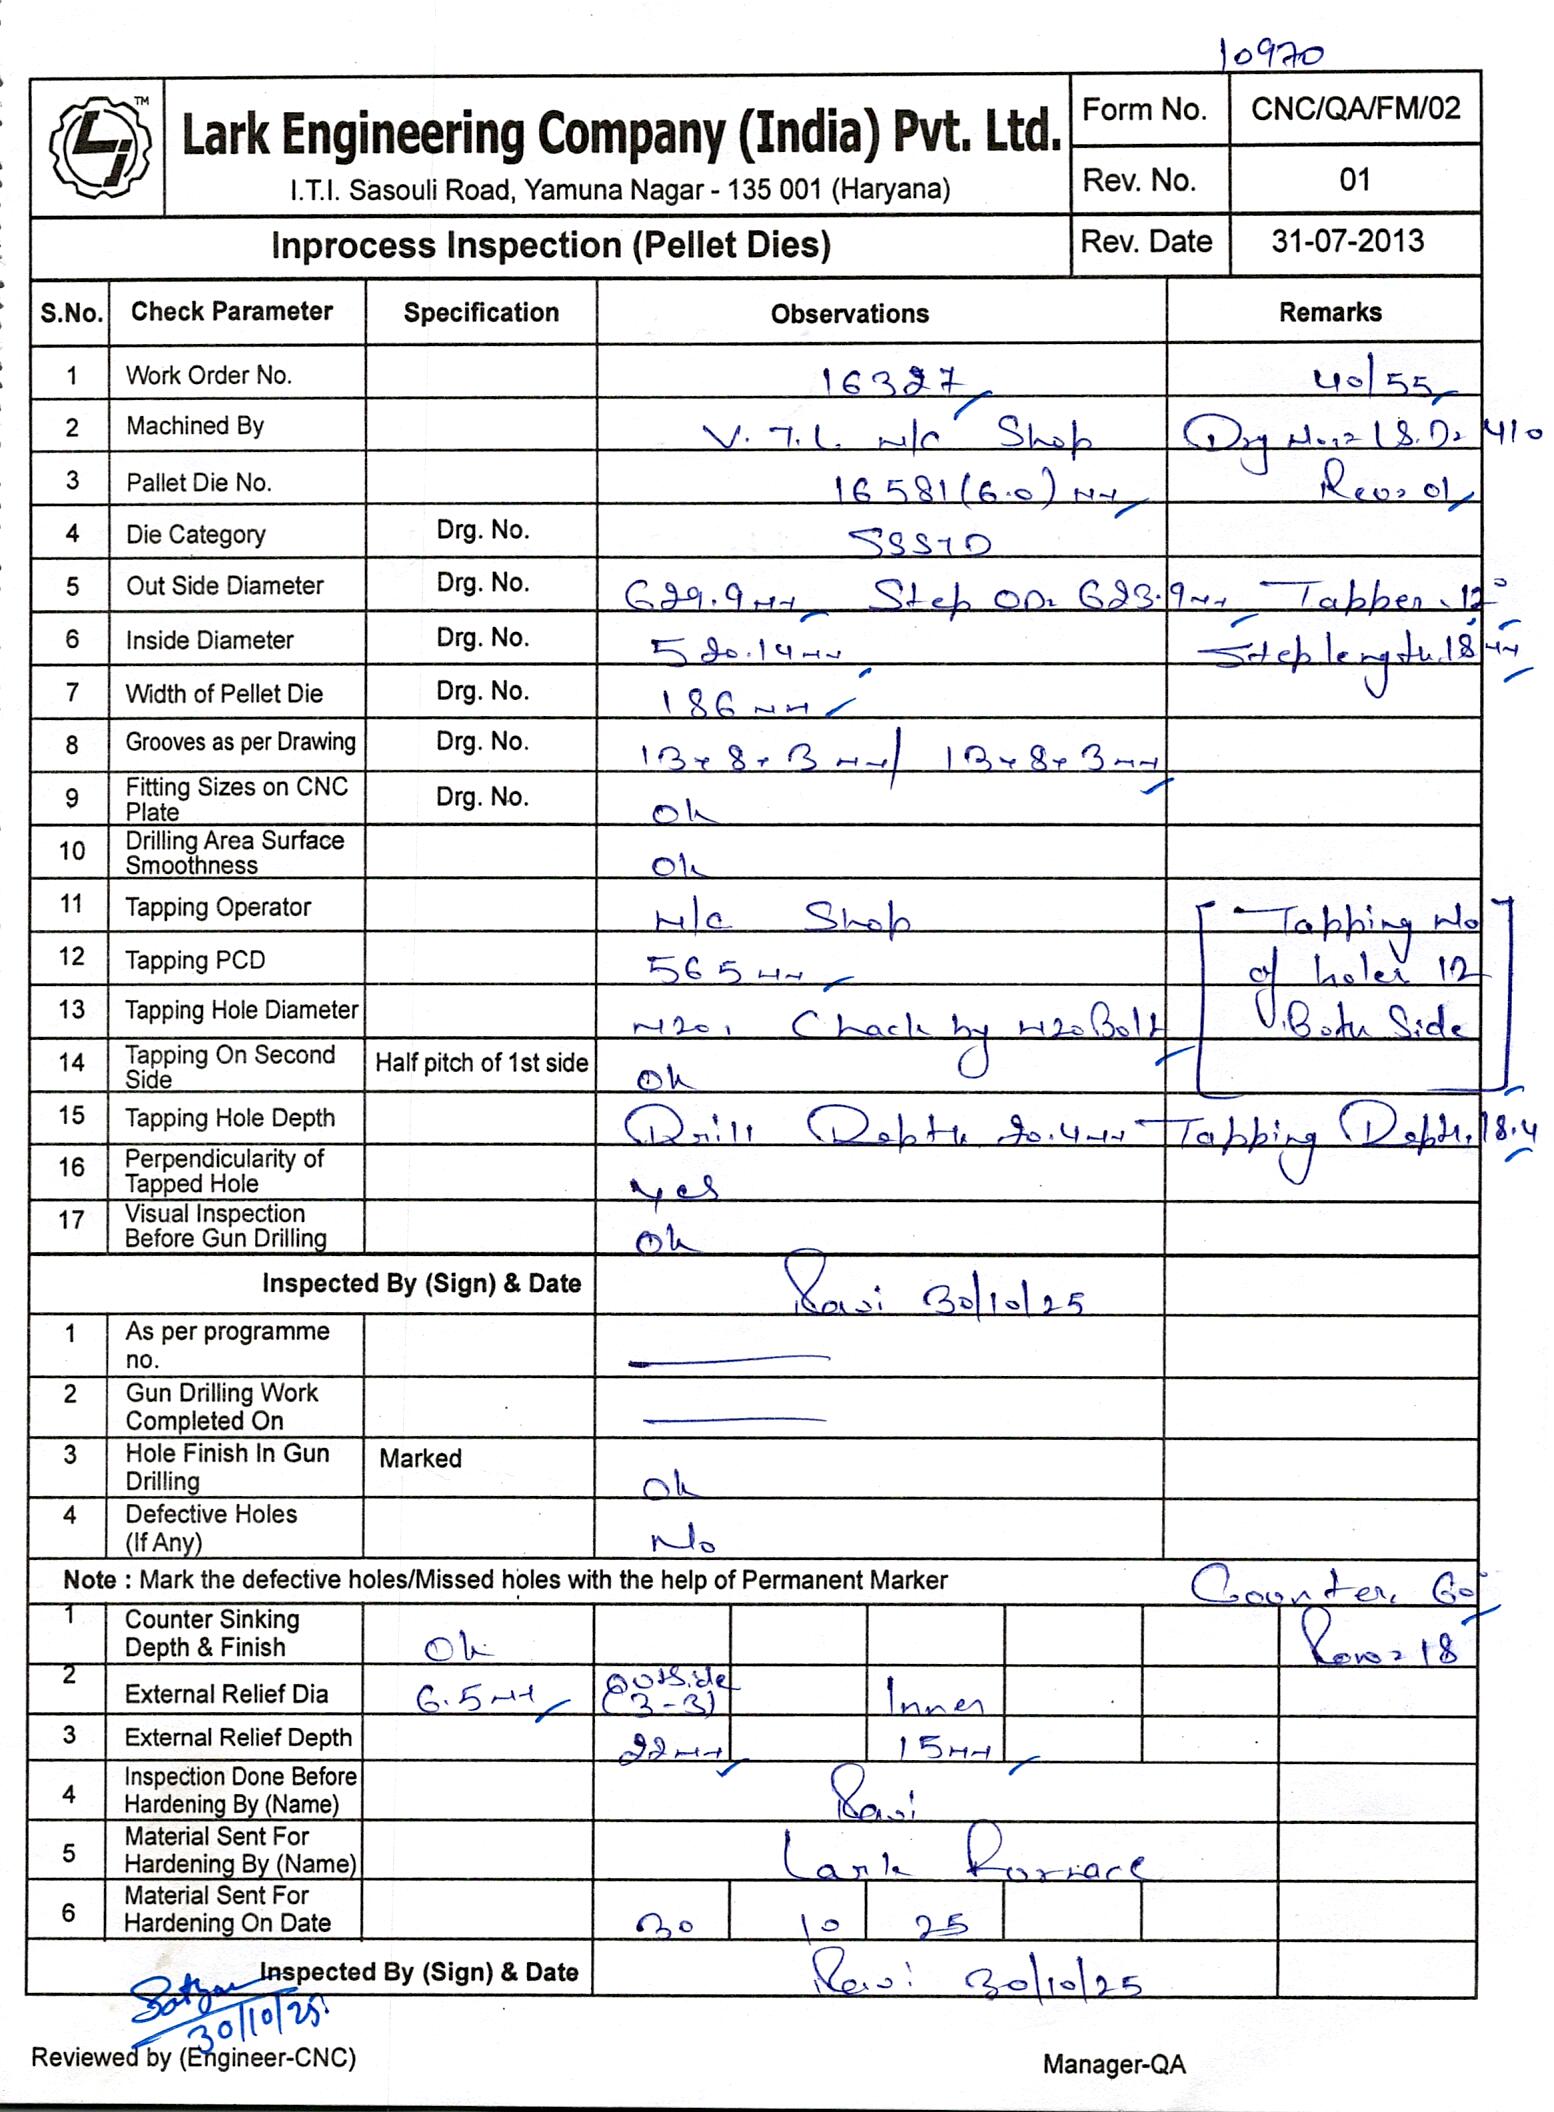 10970
TM
Lark Engineering Company (India) Pvt. Ltd.
I.T.I. Sasouli Road, Yamuna Nagar - 135 001 (Haryana)
Form No. CNC/QA/FM/02
Rev. No. 01
Inprocess Inspection (Pellet Dies) Rev. Date 31-07-2013
S.No. Check Parameter Specification Observations Remarks
1 Work Order No. 16327 40/55
2 Machined By V.T.L. M/C Shop Drg No. 410
3 Pallet Die No. 16581 (6.0) MM Rev: 01
4 Die Category Drg. No. SSSTD
5 Out Side Diameter Drg. No. 629.9 MM Step OD. 623.9 MM Tapper. 12°
6 Inside Diameter Drg. No. 520.14 MM Step length. 18 MM
7 Width of Pellet Die Drg. No. 186 MM
8 Grooves as per Drawing Drg. No. 13x8x3 MM / 13x8x3 MM
9 Fitting Sizes on CNC Plate Drg. No. Ok
10 Drilling Area Surface Smoothness Ok
11 Tapping Operator M/C Shop Tapping No
12 Tapping PCD 565 MM of holes 12
13 Tapping Hole Diameter M20, Chack by M20 Bolt Both Side
14 Tapping On Second Side Half pitch of 1st side Ok
15 Tapping Hole Depth Drill Depth 20.4 MM Tapping Depth. 18.4
16 Perpendicularity of Tapped Hole yes
17 Visual Inspection Before Gun Drilling Ok
Inspected By (Sign) & Date Ravi 30/10/25
1 As per programme no.
2 Gun Drilling Work Completed On
3 Hole Finish In Gun Drilling Marked Ok
4 Defective Holes (If Any) No
Note : Mark the defective holes/Missed holes with the help of Permanent Marker Counter. 60°
1 Counter Sinking Depth & Finish Ok Row = 18
2 External Relief Dia 6.5 MM Outside (3-3) Inner
3 External Relief Depth 22 MM 15 MM
4 Inspection Done Before Hardening By (Name) Ravi
5 Material Sent For Hardening By (Name) Lark Furnace
6 Material Sent For Hardening On Date 30 10 25
Inspected By (Sign) & Date Ravi 30/10/25
30/10/25
Reviewed by (Engineer-CNC) Manager-QA